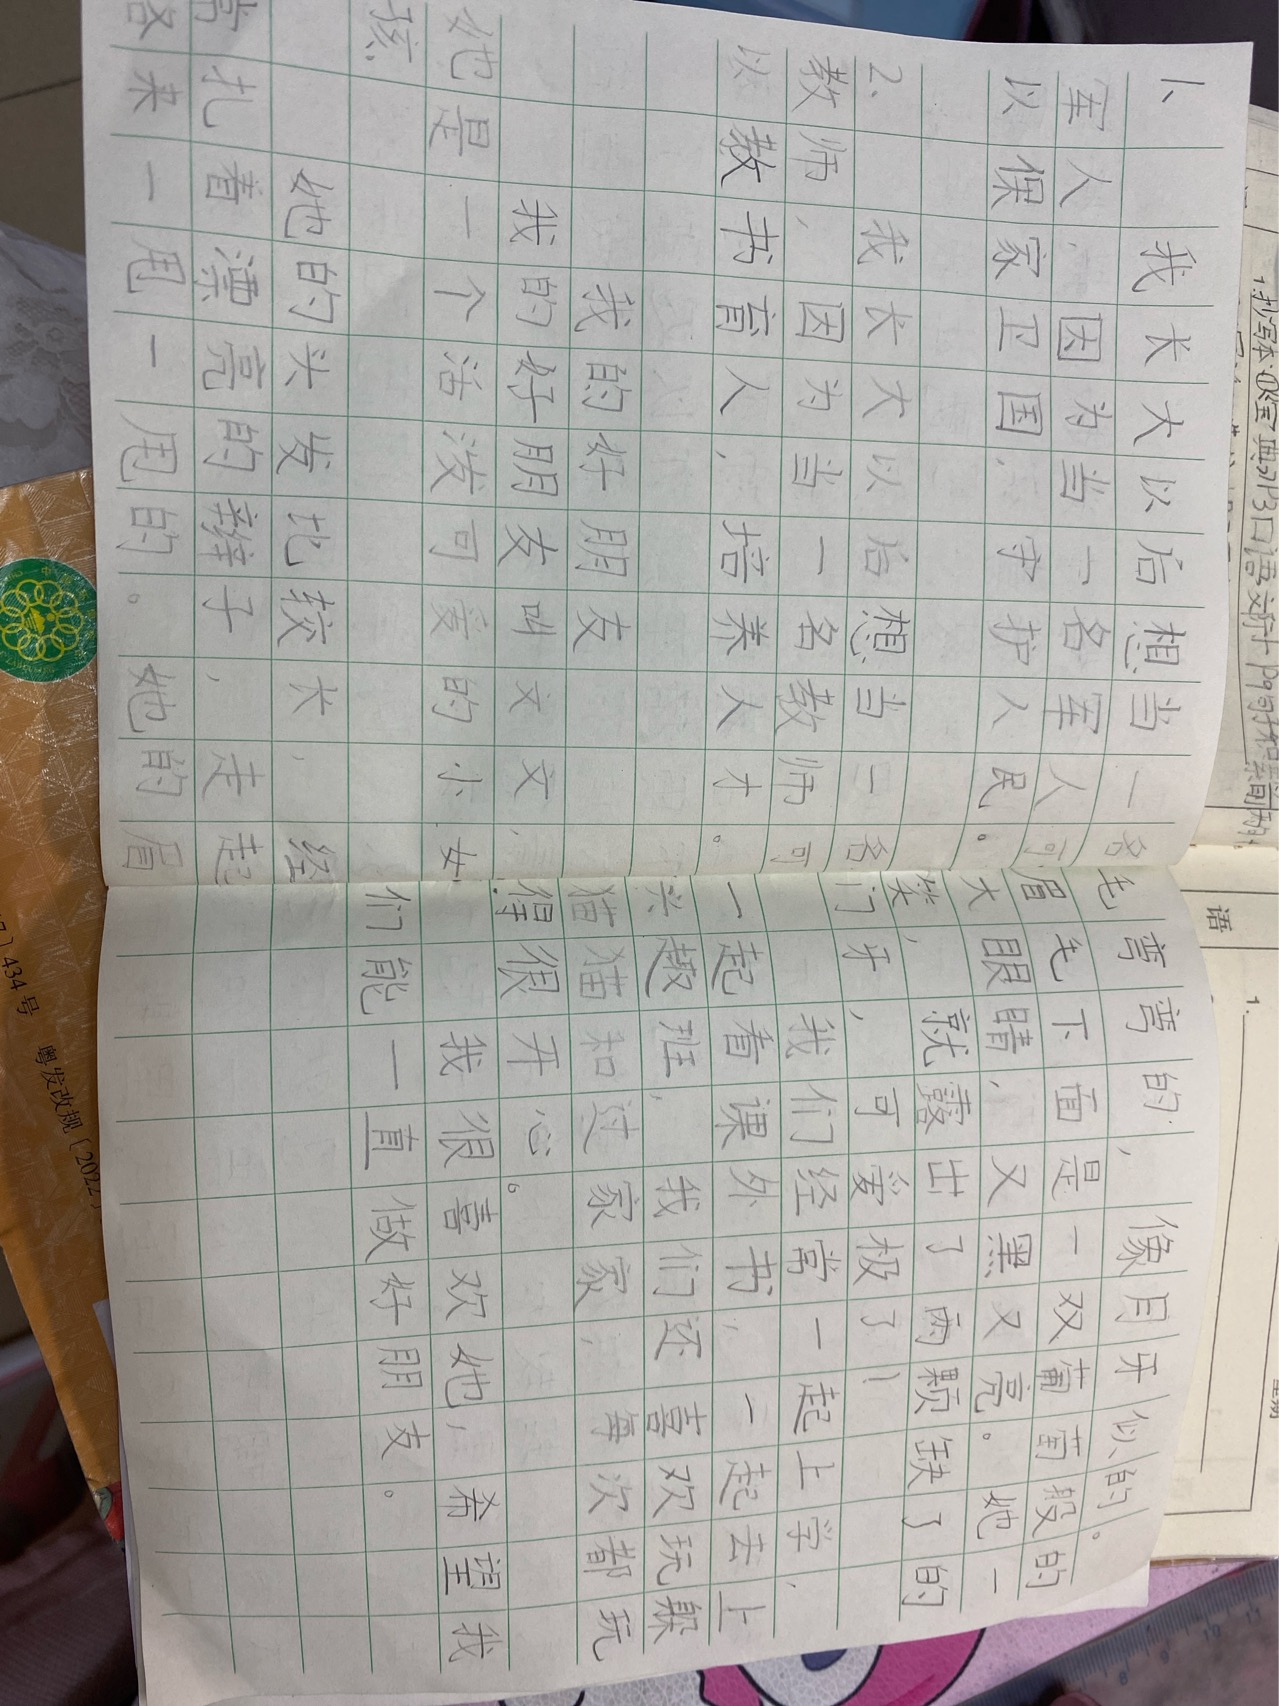 1、我长大以后想当一名
军人,因为当一名军人可
以保家卫国,守护人民。
2、我长大以后想当一名
教师,因为当一名教师可
以教书育人,培养人才。
我的好朋友
我的好朋友叫文文,
她是一个活泼可爱的小女
孩。
她的头发比较长,经
常扎着漂亮的辫子,走起
路来一甩一甩的。她的眉
毛弯弯的,像月牙似的。
眉毛下面是一双葡萄般的
大眼睛,又黑又亮。她一
笑,就露出了两颗缺了的
门牙,可爱极了!
我们经常一起上学,
一起看课外书,一起去上
兴趣班,我们还喜欢玩躲
猫猫和过家家,每次都玩
得很开心。
我很喜欢她,希望我
们能一直做好朋友。
语
1.
434号 粤发改规〔2022〕